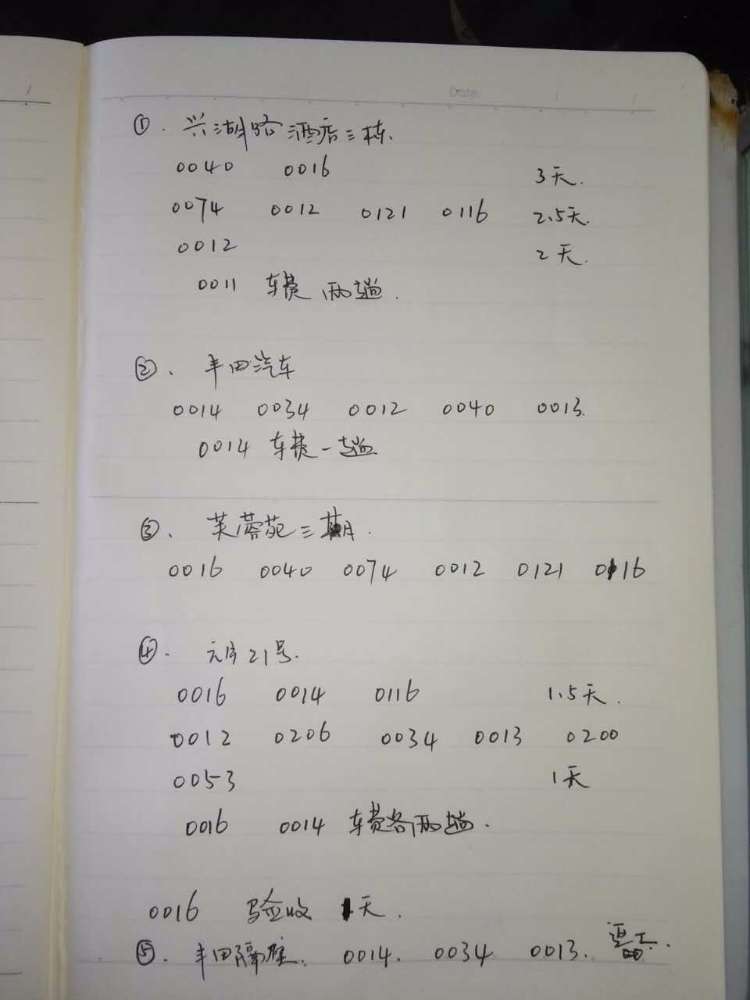 Date
① 兴湖路酒店三栋.
0040 0016 3天.
0074 0012 0121 0116 2.5天.
0012 2天.
0011 车费两趟.
②. 丰田汽车
0014 0034 0012 0040 0013.
0014 车费一趟
③. 芙蓉苑三期.
0016 0040 0074 0012 0121 0116
④. 21号.
0016 0014 0116 1.5天.
0012 0206 0034 0013 0200
0053 1天
0016 0014 车费各两趟.
0016 验收 1天.
⑤. 丰田隔壁. 0014. 0034 0013.